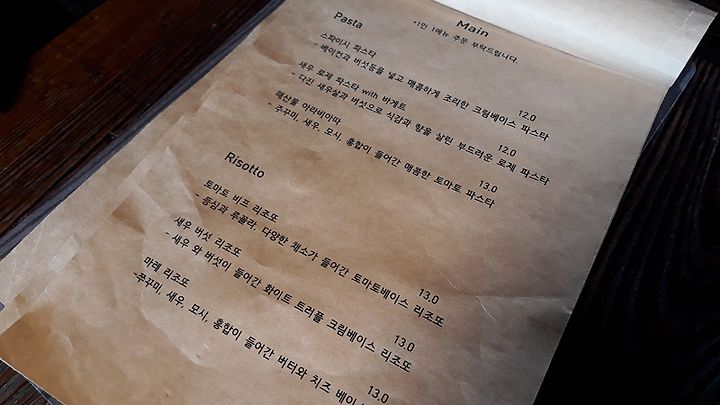 Main
-1인 1메뉴 주문 부탁드립니다.
Pasta
스파이시 파스타 12.0
- 베이컨과 버섯등을 넣고 매콤하게 조리한 크림베이스 파스타
새우 로제 파스타 with 바게트 12.0
- 다진 새우살과 버섯으로 식감과 향을 살린 부드러운 로제 파스타
해산물 아라비아따 13.0
- 주꾸미, 새우, 모시, 홍합이 들어간 매콤한 토마토 파스타
Risotto
토마토 비프 리조또 13.0
- 등심과 루꼴라, 다양한 채소가 들어간 토마토베이스 리조또
새우 버섯 리조또 13.0
- 새우 와 버섯이 들어간 화이트 트러플 크림베이스 리조또
마레 리조또 13.0
-쭈꾸미, 새우, 모시, 홍합이 들어간 버터와 치즈 베이